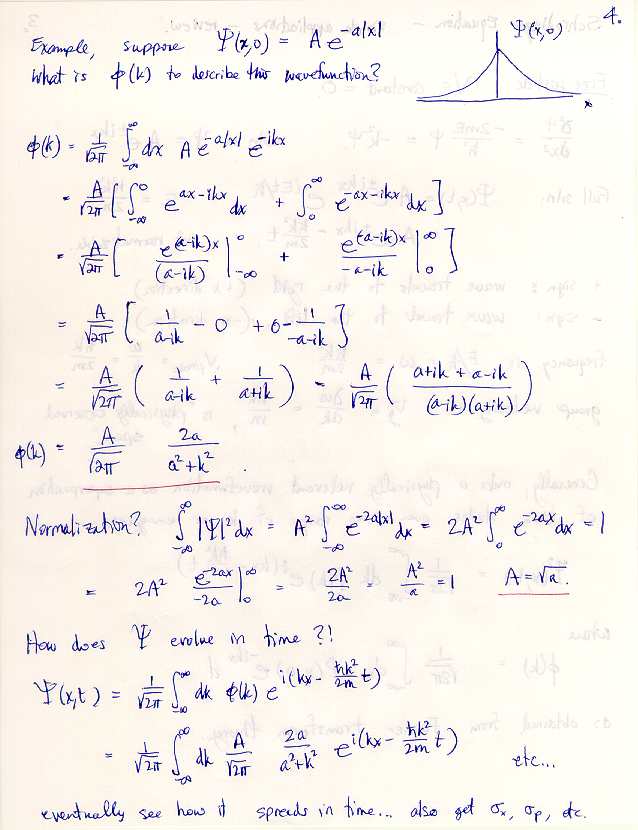 4.
Example, suppose Ψ(x,0) = A e^{-a|x|}
Ψ(x,0)
What is φ(k) to describe this wavefunction?
x
φ(k) = 1/√2π ∫_{-∞}^{∞} dx A e^{-a|x|} e^{-ikx}
= A/√2π [ ∫_{-∞}^{0} e^{ax-ikx} dx + ∫_{0}^{∞} e^{-ax-ikx} dx ]
= A/√2π [ e^{(a-ik)x}/(a-ik) |_{-∞}^{0} + e^{(-a-ik)x}/(-a-ik) |_{0}^{∞} ]
= A/√2π [ 1/(a-ik) - 0 + 0 - 1/(-a-ik) ]
= A/√2π ( 1/(a-ik) + 1/(a+ik) ) = A/√2π ( (a+ik + a-ik)/((a-ik)(a+ik)) )
φ(k) = A/√2π 2a/(a²+k²) .
Normalization? ∫_{-∞}^{∞} |Ψ|² dx = A² ∫_{-∞}^{∞} e^{-2a|x|} dx = 2A² ∫_{0}^{∞} e^{-2ax} dx = 1
= 2A² e^{-2ax}/(-2a) |_{0}^{∞} = 2A²/2a = A²/a = 1 A = √a .
How does Ψ evolve in time ?!
Ψ(x,t) = 1/√2π ∫_{-∞}^{∞} dk φ(k) e^{i(kx - ħk²/2m t)}
= 1/√2π ∫_{-∞}^{∞} dk A/√2π 2a/(a²+k²) e^{i(kx - ħk²/2m t)} etc...
eventually see how it spreads in time... also get σ_x, σ_p, etc.